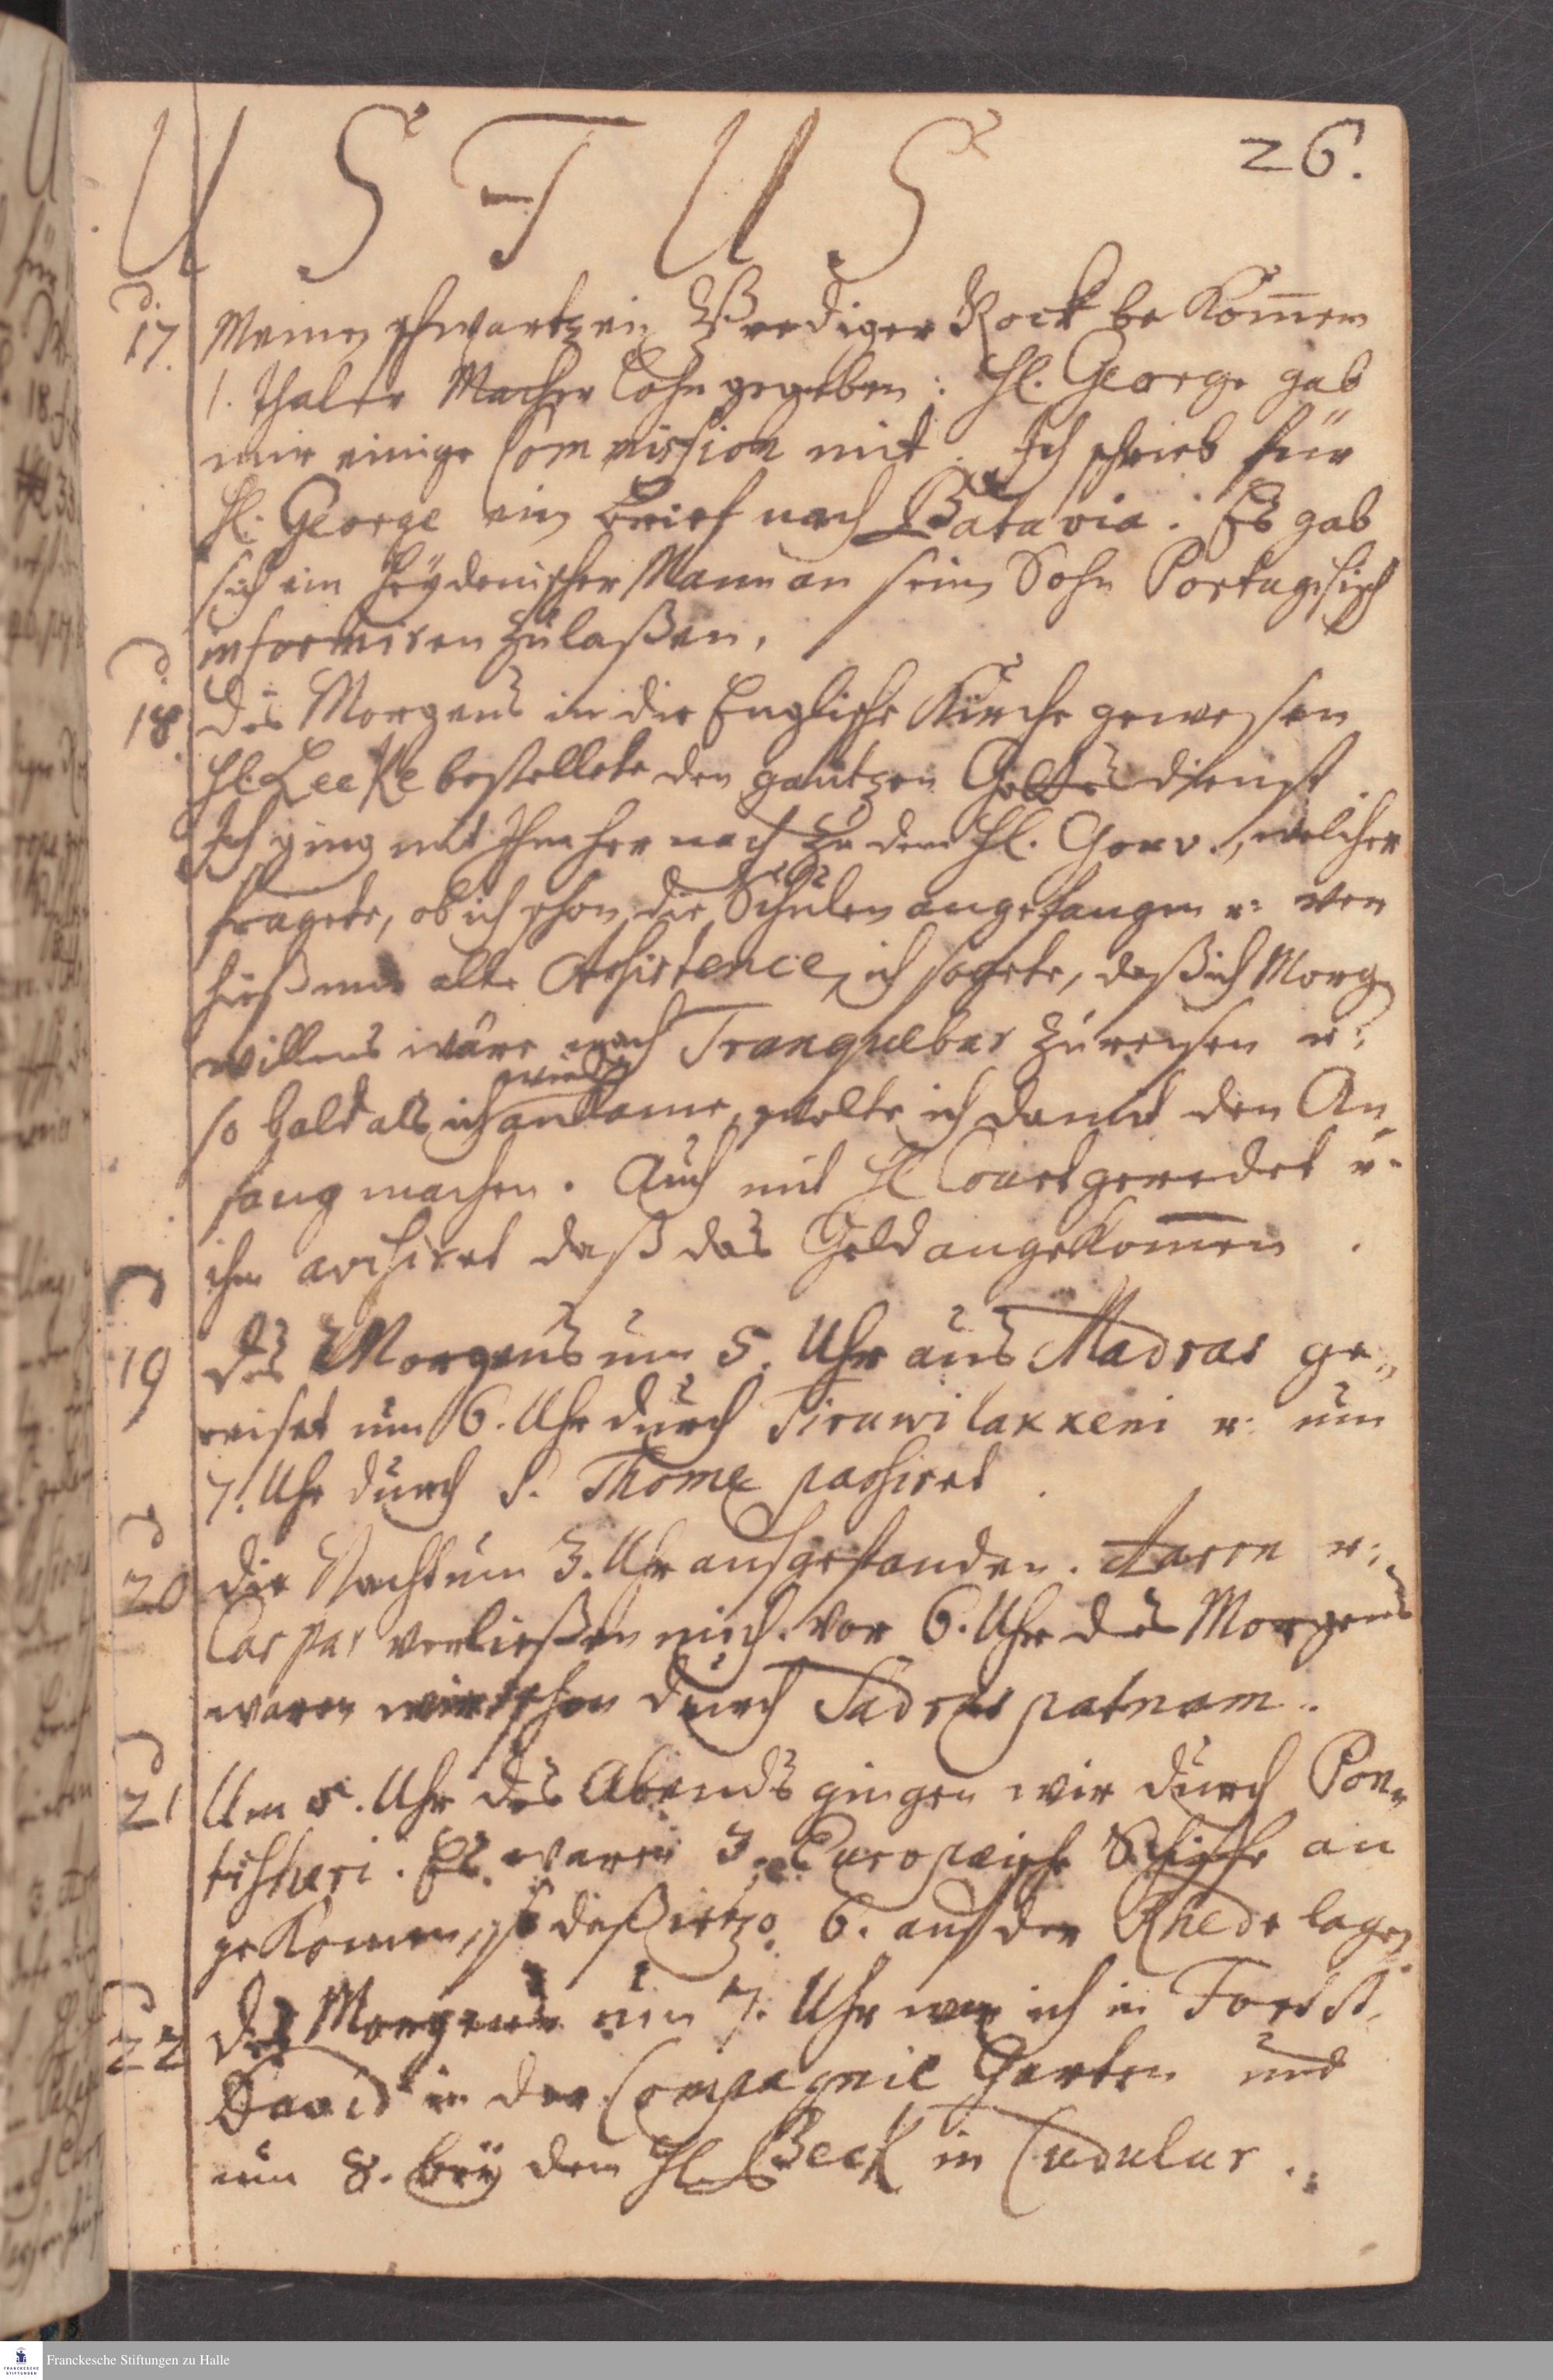 USTUS
26.
d. 17. Meinen schwartzen Prediger Rock bekom̅en
1. Thaler Macher Lohn gegeben: H. George gab
mir einige Commission mit. Ich schrieb für
H. George ein Brief nach Batavia. Es gab
sich ein Heÿdenischer Mann an sein Sohn Portugisisch
informiren zu laßen.
d. 18. Des Morgens in die Englische Kirche gewesen
H. Leeke bestellete den gantzen Gottesdienst.
Ich ging mit Ihm hernach zu dem H. Gouv., welcher
fragete, ob ich schon die Schulen angefangen u. ver
hieß mir alle Assistence, ich sagete, daß ich Morgen
willens wäre nach Tranquebar zu reisen u.
so bald als ich wieder ankäme, wolte ich damit den An
fang machen. Auch mit H. Court geredet u.
ihm avisiret daß das Geld angekom̅en.
d. 19 Des Morgens um 5. Uhr aus Madras ge
reiset um 6. Uhr durch Tiruwilakkeni u. um
7. Uhr durch S. Thome passiret.
d. 20 Die Nacht um 3. Uhr aufgestanden. Aaron u.
Caspar verließen mich. Vor 6. Uhr des Morgens
waren wir schon durch Sadraspatnam.
d. 21 Um 5. Uhr des Abends gingen wir durch Pon
tischeri. Es waren 3. Europeische Schiffe an
gekomen, so daß ietzo 6. auf der Rhede lagen
d. 22 Des Morgens um 7. Uhr war ich in Fort St.
David in der Compagnie Garten und
um 8. beÿ dem H. Beck in Cudulur.
Franckesche Stiftungen zu Halle